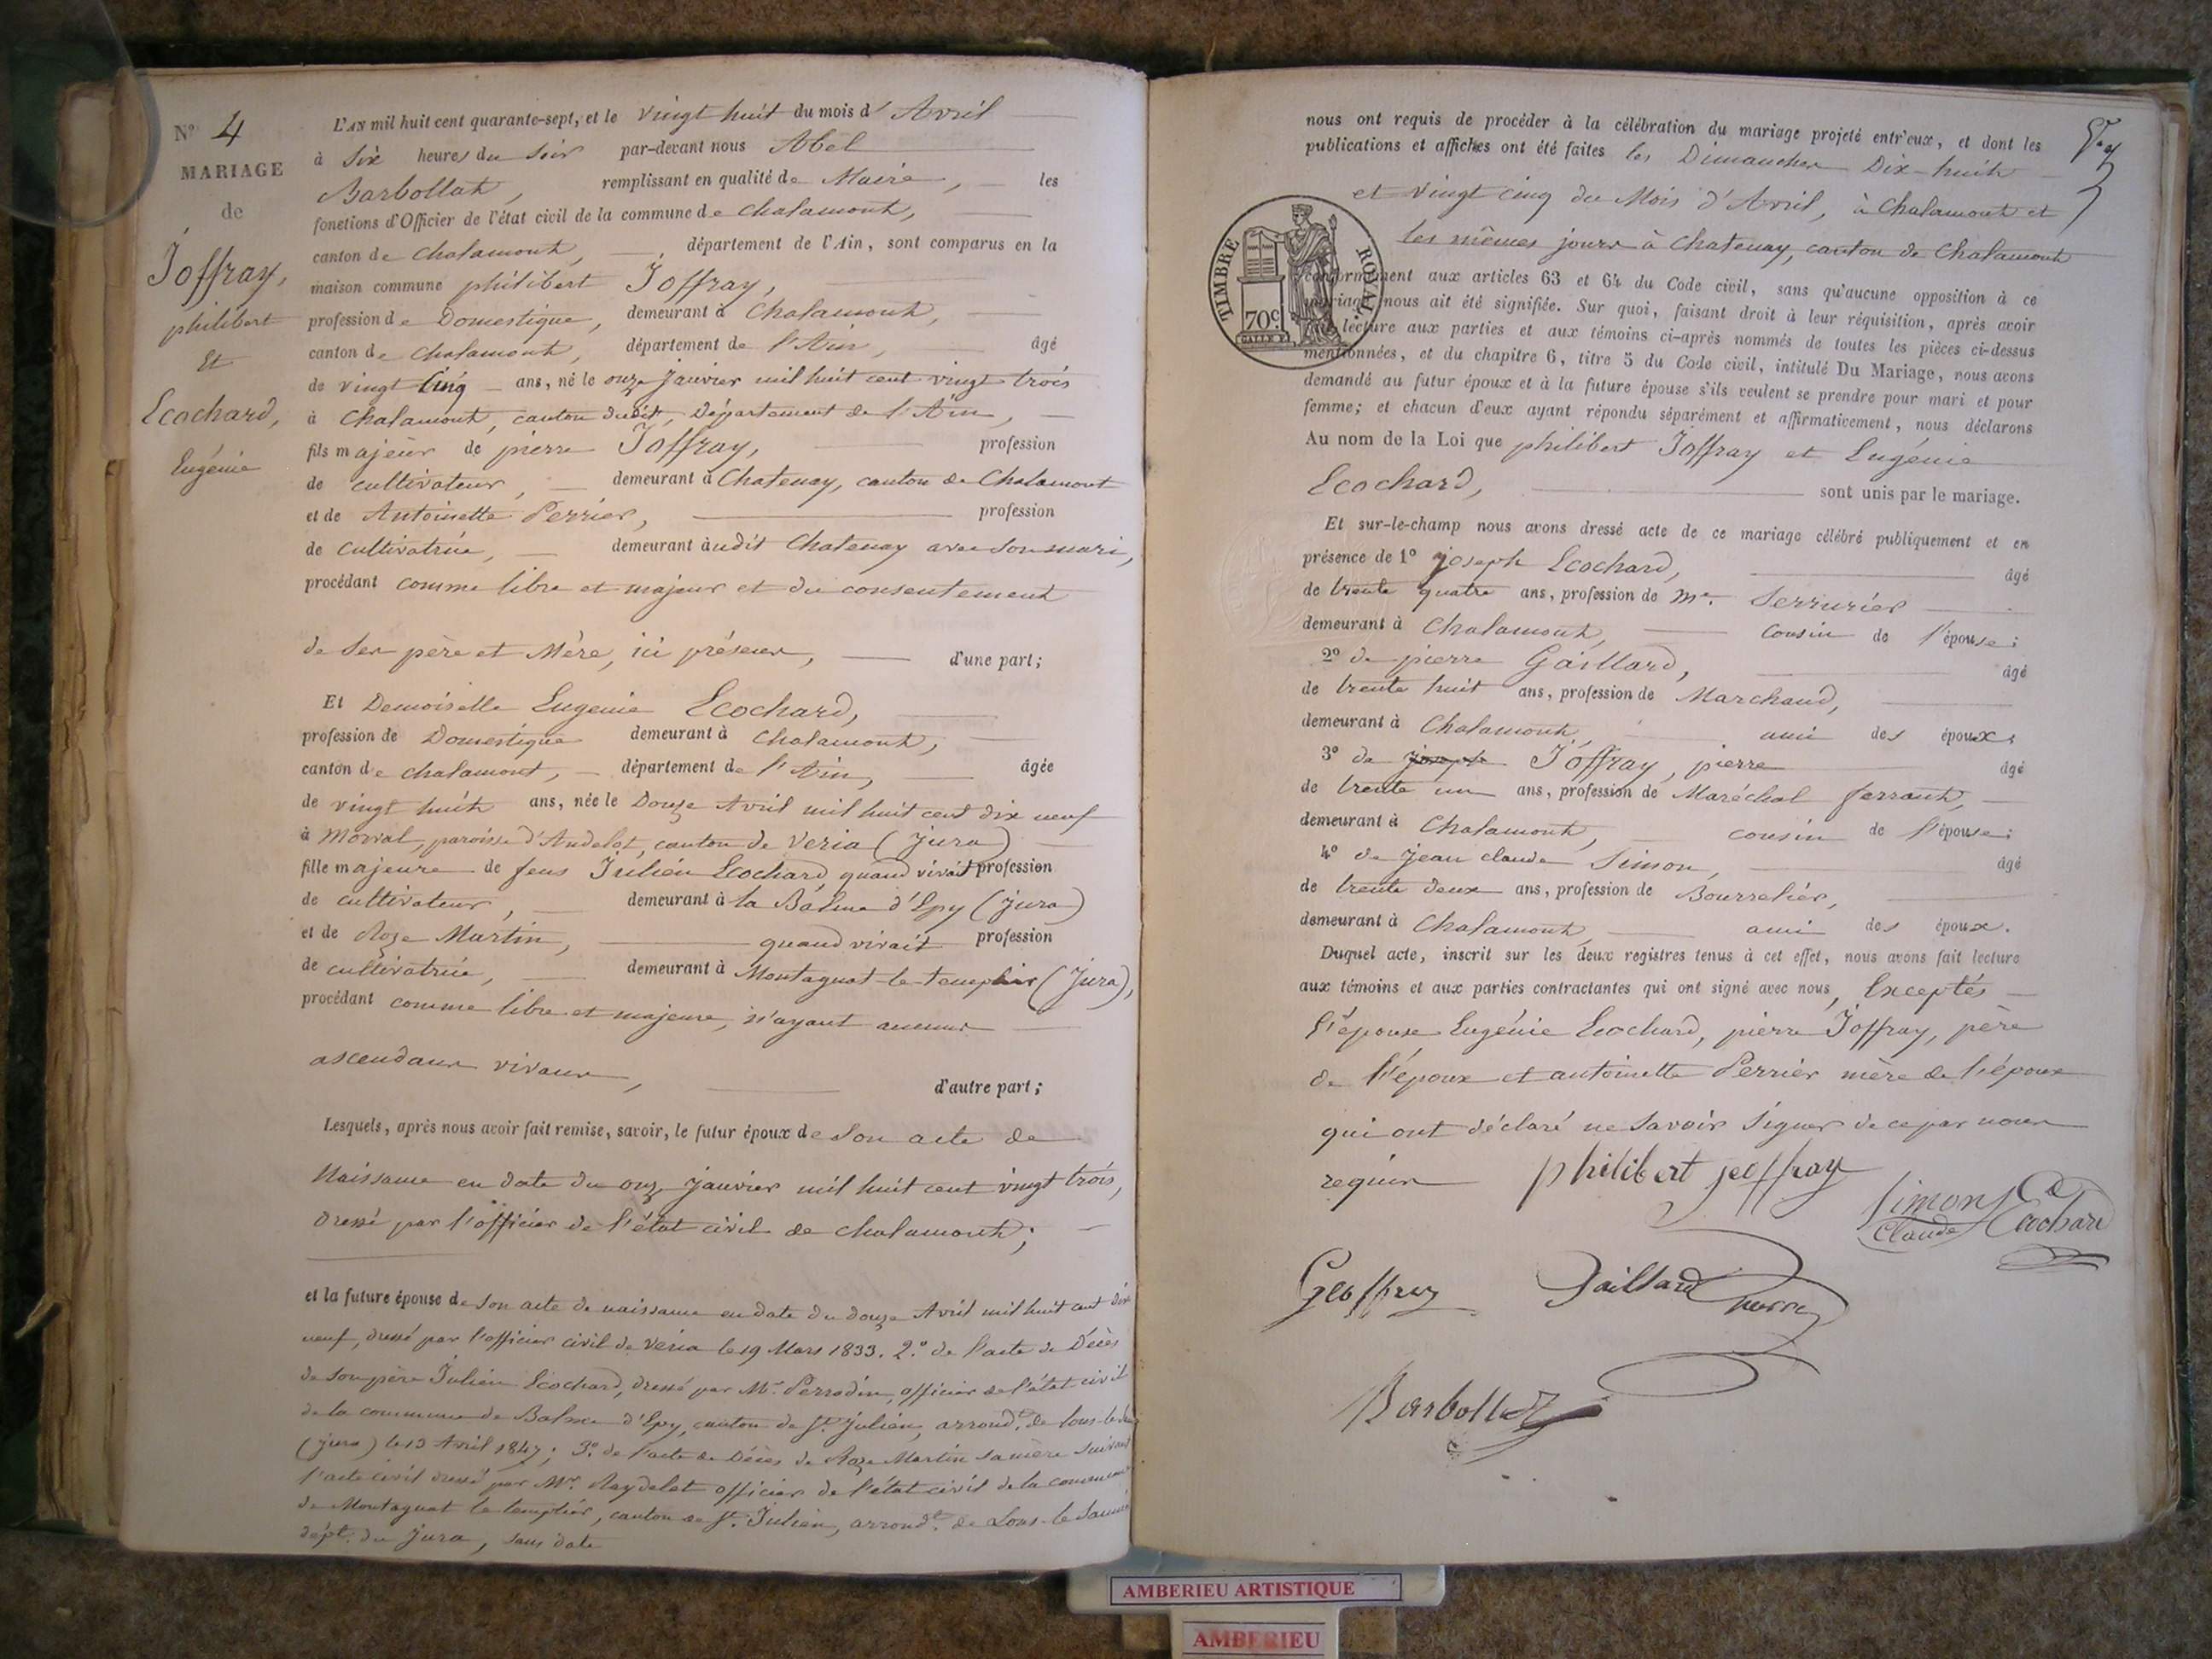 N° 4
MARIAGE
de
Joffray,
philibert
Et
Ecochard,
Eugénie
L'AN mil huit cent quarante-sept, et le vingt huit du mois d'Avril
à Six heures du Soir par-devant nous Abel
Barbollat, remplissant en qualité de Maire, les
fonctions d'Officier de l'état civil de la commune de Chalamont,
canton de Chalamont, département de l'Ain, sont comparus en la
maison commune philibert Joffray,
profession de Domestique, demeurant à Chalamont,
canton de Chalamont, département de l'Ain, âgé
de vingt Cinq ans, né le onze Janvier mil huit cent vingt trois
à Chalamont, canton dudit, Département de l'Ain,
fils majeur de pierre Joffray, profession
de cultivateur, demeurant à Chatenay, canton de Chalamont
et de Antoinette Perrier, profession
de cultivatrice, demeurant àudit Chatenay avec son mari,
procédant comme libre et majeur et du consentement
de Ses père et Mère, ici présens, d'une part;
Et Demoiselle Eugenie Ecochard,
profession de Domestique demeurant à Chalamont,
canton de chalamont, département de l'Ain, âgée
de vingt huit ans, née le Douze Avril mil huit cent dix neuf
à Morval, paroisse d'Andelot, canton de Veria (Jura)
fille majeure de feus Julien Ecochard quand vivait profession
de cultivateur, demeurant à la Balme d'Epy (Jura)
et de Roze Martin, quand vivait profession
de cultivatrice, demeurant à Montagnat-le-templier (Jura),
procédant comme libre et majeure, n'ayant aucuns
ascendans vivans, d'autre part;
Lesquels, après nous avoir fait remise, savoir, le futur époux de Son acte de
Naissance en date du onze Janvier mil huit cent vingt trois,
dressé par l'officier de l'état civil de chalamont;
et la future épouse de Son acte de naissance en date du douze Avril mil huit cent dix
neuf, dressé par l'officier civil de Veria le 19 Mars 1833. 2.° de l'acte de Décès
de Son père Julien Ecochard, dressé par Mr. Perrodin, officier de l'état civil
de la commune de Balme d'Epy, canton de St. Julien, arrond.t de Lons-le-
(Jura) le 13 Avril 1847; 3.° de l'acte de Décès de Roze Martin Sa mère Suivant
l'acte civil dressé par Mr. Raydelet officier de l'état civil de la commune
de Montagnat le templier, canton de St. Julien, arrond.t de Lons-le-Saunier
dépt. du Jura, Sans date
nous ont requis de procéder à la célébration du mariage projeté entr'eux, et dont les
publications et affiches ont été faites les Dimanches Dix-huit
et vingt cinq du Mois d'Avril, à Chalamont et
les mêmes jours à Chatenay, canton de Chalamont
TIMBRE ROYAL.
70c.
conformément aux articles 63 et 64 du Code civil, sans qu'aucune opposition à ce
mariage nous ait été signifiée. Sur quoi, faisant droit à leur réquisition, après avoir
lecture aux parties et aux témoins ci-après nommés de toutes les pièces ci-dessus
mentionnées, et du chapitre 6, titre 5 du Code civil, intitulé Du Mariage, nous avons
demandé au futur époux et à la future épouse s'ils veulent se prendre pour mari et pour
femme; et chacun d'eux ayant répondu séparément et affirmativement, nous déclarons
Au nom de la Loi que philibert Joffray et Eugénie
Ecochard, sont unis par le mariage.
Et sur-le-champ nous avons dressé acte de ce mariage célébré publiquement et en
présence de 1° joseph Ecochard, âgé
de trente quatre ans, profession de Me. Serrurier
demeurant à Chalamont, cousin de l'épouse;
2° de pierre Gaillard, âgé
de trente huit ans, profession de Marchand,
demeurant à Chalamont, ami des époux,
3° de joseph Joffray, pierre âgé
de trente un ans, profession de Maréchal ferrant,
demeurant à Chalamont, cousin de l'épouse;
4° de Jean claude Simon, âgé
de trente deux ans, profession de Bourrelier,
demeurant à Chalamont, ami des époux.
Duquel acte, inscrit sur les deux registres tenus à cet effet, nous avons fait lecture
aux témoins et aux parties contractantes qui ont signé avec nous, Exceptés
l'épouse Eugénie Ecochard, pierre Joffray, père
de l'époux et antoinette Perrier mère de l'époux
qui ont déclaré ne Savoir Signer de ce par nous
requis philibert jeoffray
Simon Ecochard
Claude
Geoffray Gaillard Pierre
Barbollat
AMBERIEU ARTISTIQUE
AMBERIEU